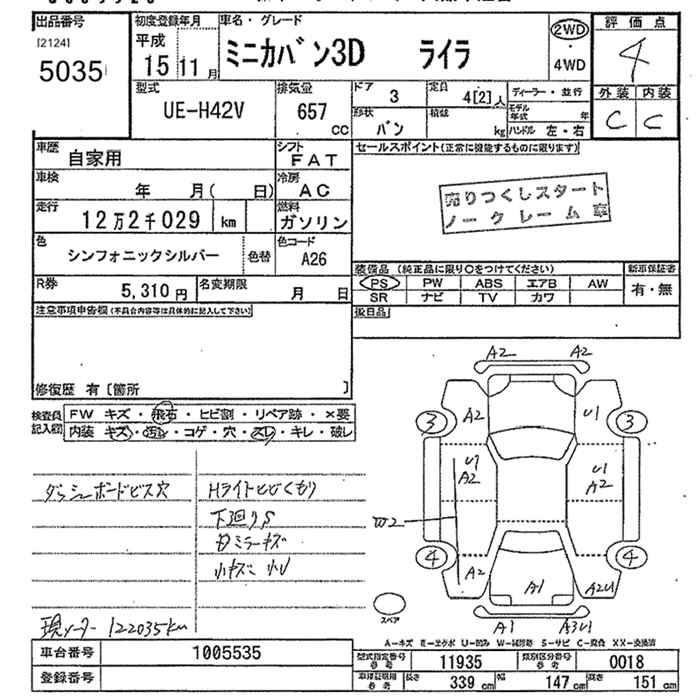 出品番号
[2124]
5035
初度登録年月
平成
15 11月
車名・グレード
ミニカバン3D ライラ
2WD
・
4WD
評価点
4
外装 内装
C C
型式
UE-H42V
排気量
657
CC
ドア 3
定員 4[2]人
ディーラー・並行
形状 バン
積載 kg
モデル年式 年
ハンドル 左・右
車歴 自家用
シフト FAT
セールスポイント(正常に機能するものに限ります)
車検 年 月( 日)
冷房 AC
売りつくしスタート
ノークレーム車
走行 12万2千029 km
燃料 ガソリン
色 シンフォニックシルバー 色替
色コード A26
装備品 (純正品に限り○をつけてください)
新車保証書
R券 5,310円
名変期限 月 日
PS PW ABS エアB AW
SR ナビ TV カワ
有・無
注意事項申告欄(不具合内容等は具体的に記入して下さい)
後日品
修復歴 有〔箇所 〕
検査員記入欄
FW キズ・飛石・ヒビ割・リペア跡・×要
内装 キズ・汚れ・コゲ・穴・スレ・キレ・破レ
ダッシュボードビス穴
Hライトヒビくもり
下廻りS
ミラーキズ
小キズ 小U
現メーター 122035km
A2 A2
A2 U1
3 3
U1 A2
U1 A2
W2
4 4
A2 A1 A2U1
スペア
A1 A3U1
A-キズ E-エクボ U-凹み W-補修跡 S-サビ C-腐食 XX-交換済
車台番号 1005535
登録番号
型式指定番号 参考 11935
類別区分番号 参考 0018
車検証取用 参考
長さ 339cm
幅 147cm
高さ 151cm